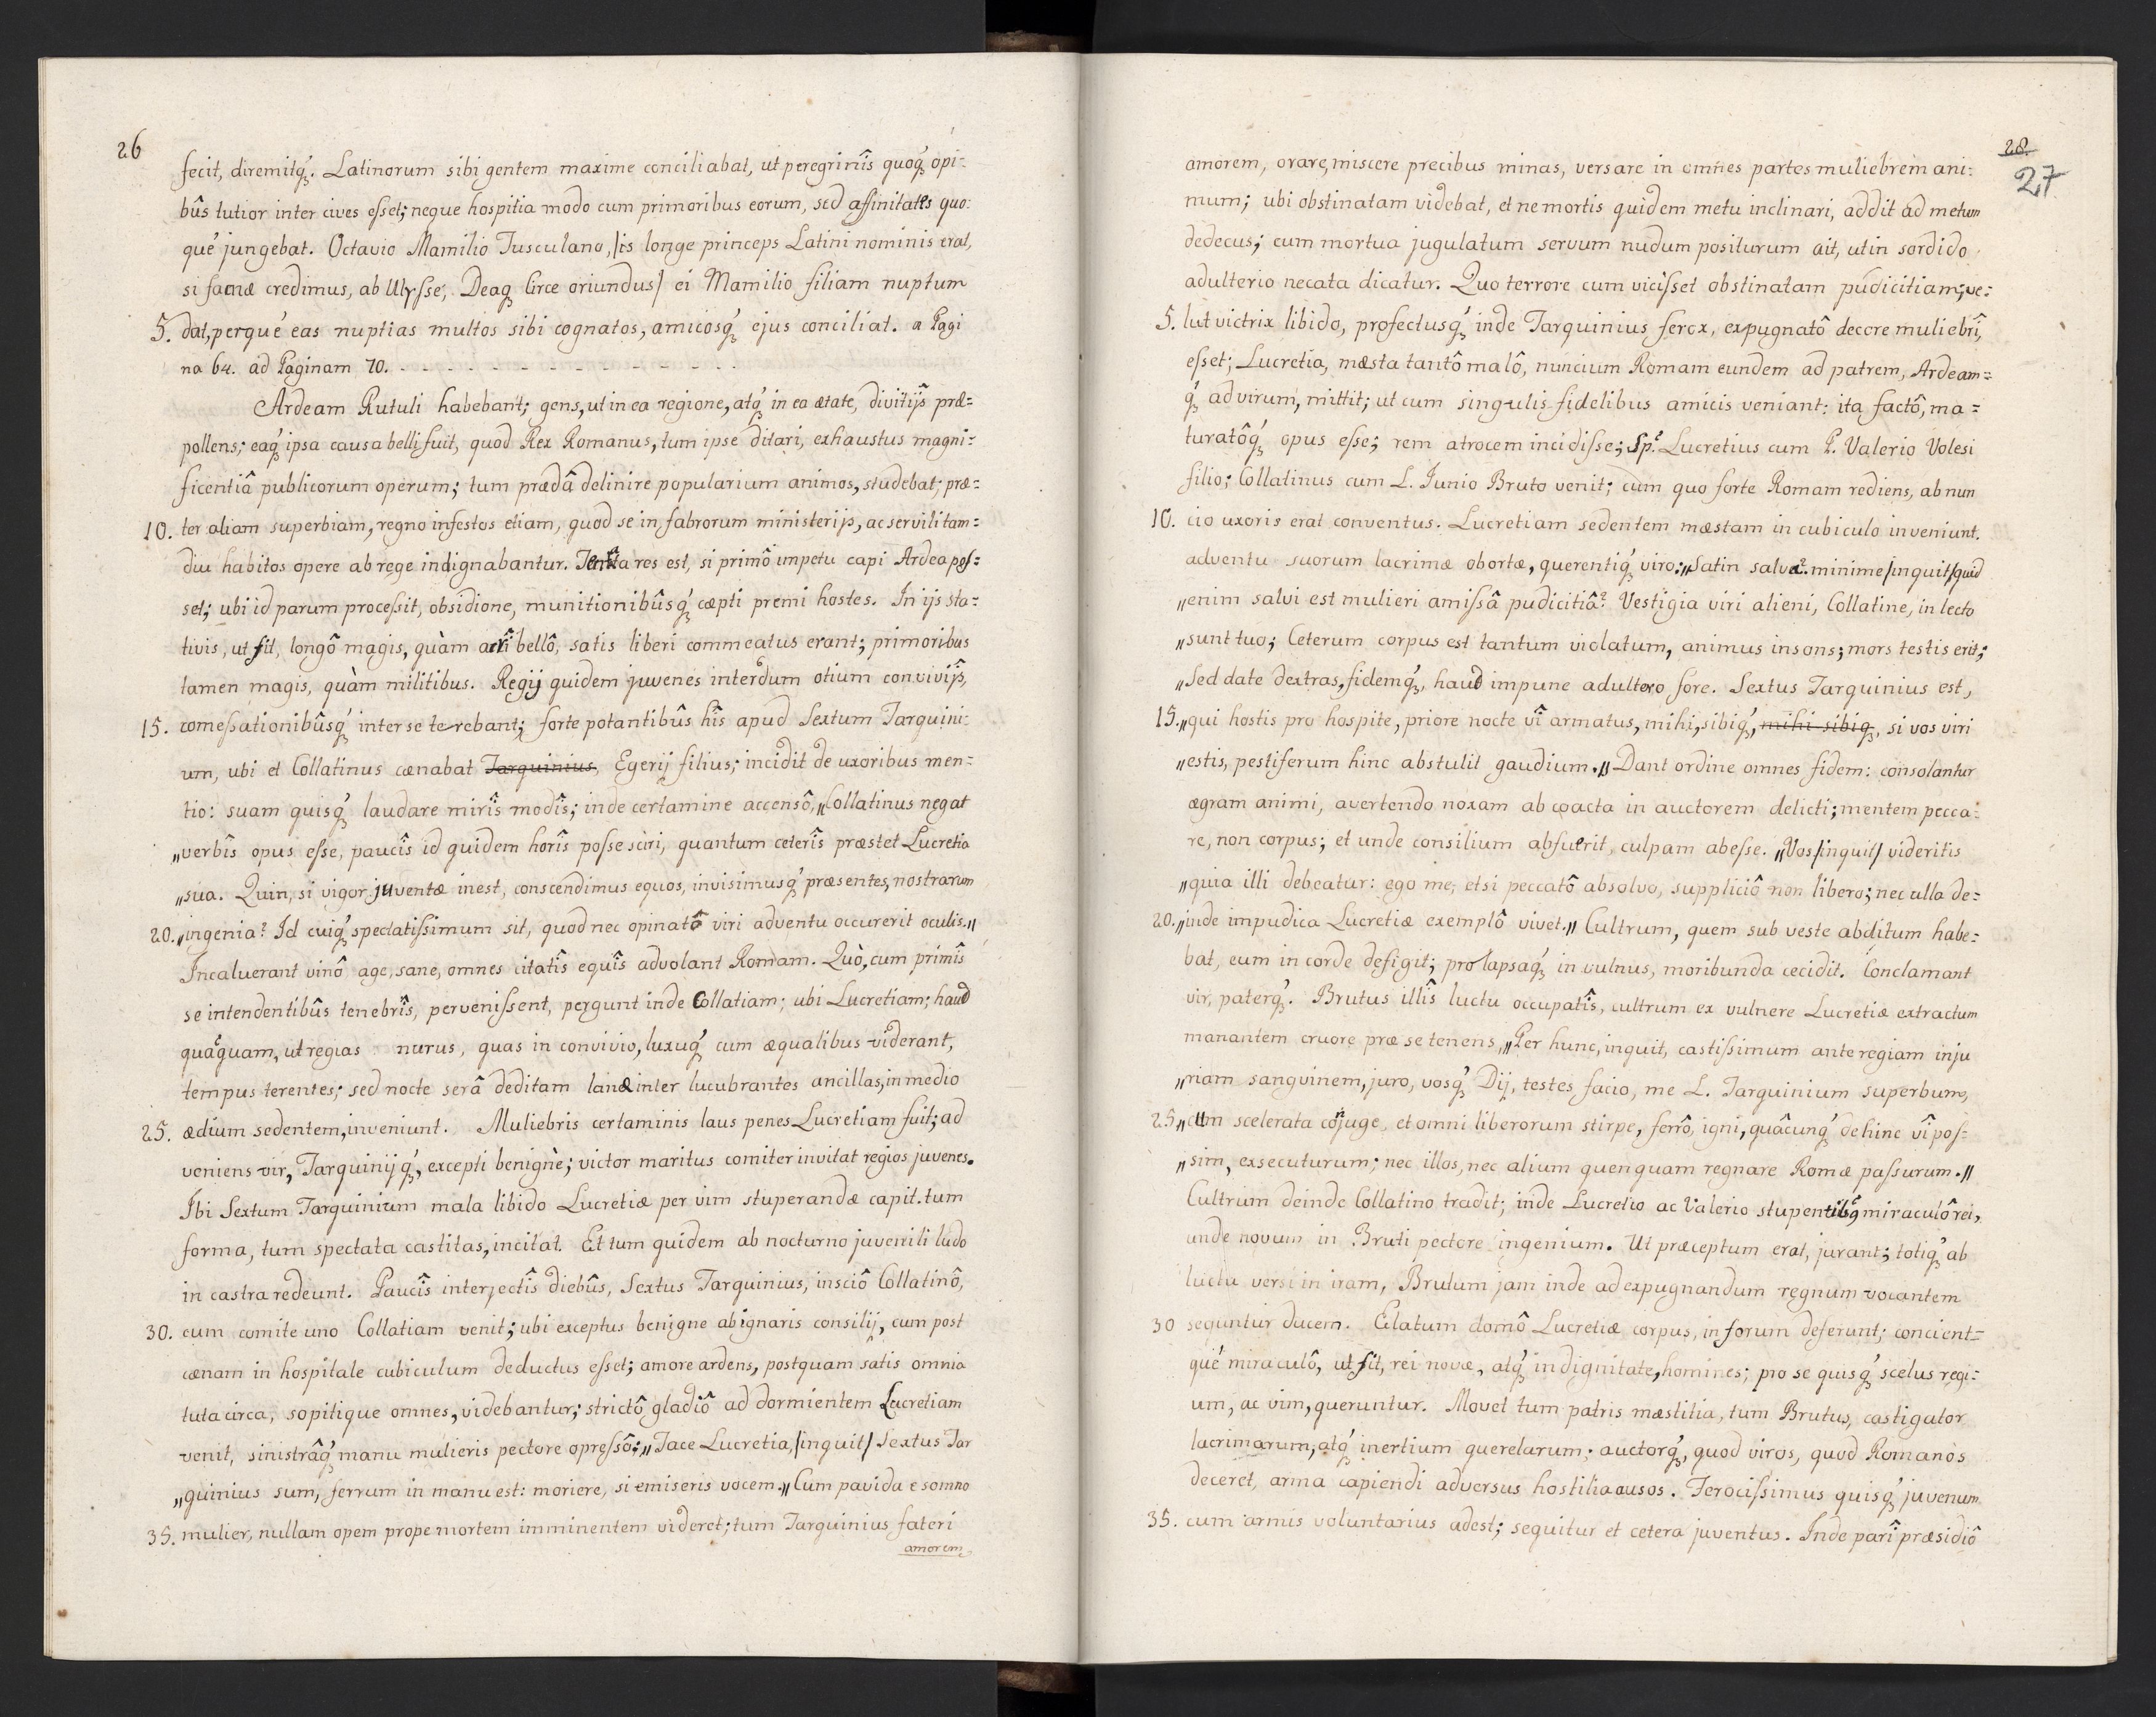 26
fecit, diremitq́ꝫ. Latinorum sibi gentem maxime conciliabat, ut peregrinîs quoq́ꝫ opi-
bûs tutior inter cives eſset; neque hospitia modo cum primoribus eorum, sed affinitates quo-
qué jungebat. Octavio Mamilio Tusculano, /is longe princeps Latini nominis erat,
si famæ credimus, ab Ulyſse, Deaqꝫ Circe oriundus/ ei Mamilio filiam nuptum
5. dat, perqué eas nuptias multos sibi cognatos, amicosq́ꝫ ejus conciliat. a Pagi
na 64. ad Paginam 70. - - - - - - - - - - - -
Ardeam Rutuli habebant; gens, ut in ea regione, atq́ꝫ in ea ætate, divitijs præ-
pollens; eaq́ꝫ ipsa causa belli fuit, quod Rex Romanus, tum ipse ditari, exhaustus magni-
ficentiâ publicorum operum; tum prædâ delinire popularium animos, studebat; præ-
10. ter aliam superbiam, regno infestos etiam, quod se in fabrorum ministerijs, ac servili tam-
diu habitos opere ab rege indignabantur. Tentata res est, si primô impetu capi Ardea poſ-
set; ubi id parum proceſsit, obsidione, munitionibûsq́ꝫ cæpti premi hostes. In ijs sta-
tivis, ut fit, longô magis, quàm acrî bellô, satis liberi commeatus erant; primoribus
tamen magis, quàm militibus. Regij quidem juvenes interdum otium convivijs,
15. comeſsationibûsq́ꝫ inter se terebant; forte potantibûs hîs apud Sextum Tarquini-
um, ubi et Collatinus cænabat Tarquinius, Egerij filius; incidit de uxoribus men-
tio: suam quisq́ꝫ laudare mirîs modîs; inde certamine accensô, „Collatinus negat
„verbîs opus eſse, paucîs id quidem horîs poſse sciri, quantum ceterîs præstet Lucretia
„sua. Quin, si vigor juventæ inest, conscendimus equos, invisimusq́ꝫ præsentes, nostrarum
20. „ingenia? Id cuiq́ꝫ spectatiſsimum sit, quod nec opinatô viri adventu occurerit oculis.„
Incaluerant vinô age, sane, omnes citatîs equîs advolant Romam. Quò, cum primîs
se intendentibûs tenebrîs, perveniſsent, pergunt inde Collatiam; ubi Lucretiam; haud
quaquam, ut regias nurus, quas in convivio, luxuq́ꝫ cum æqualibus viderant,
tempus terentes; sed nocte serâ deditam lanæ inter lucubrantes ancillas, in medio
25. ædium sedentem, inveniunt. Muliebris certaminis laus penes Lucretiam fuit; ad
veniens vir, Tarquinijq́ꝫ, excepti benignè; victor maritus comiter invitat regios juvenes.
Ibi Sextum Tarquinium mala libido Lucretiæ per vim stuperandæ capit. tum
forma, tum spectata castitas, incitat. Et tum quidem ab nocturno juvenili ludo
in castra redeunt. Paucîs interjectîs diebûs, Sextus Tarquinius, insciô Collatinô,
30. cum comite uno Collatiam venit; ubi exceptus benigne ab ignaris consilij, cum post
cænam in hospitale cubiculum deductus eſset; amore ardens, postquam satis omnia
tuta circa, sopitique omnes, videbantur; strictô gladiô ad dormientem Lucretiam
venit, sinistrâq́ꝫ manu mulieris pectore opreſsô; „Tace Lucretia, /inquit/ Sextus Tar
„quinius sum, ferrum in manu est: moriere, si emiseris vocem.„ Cum pavida e somno
35. mulier, nullam opem prope mortem imminentem videret; tum Tarquinius fateri
amorem,
28.
27
amorem, orare, miscere precibus minas, versare in omnes partes muliebrem ani-
mum; ubi obstinatam videbat, et ne mortis quidem metu inclinari, addit ad metum
dedecus; cum mortua jugulatum servum nudum positurum ait, ut in sordido
adulterio necata dicatur. Quo terrore cum viciſset obstinatam pudicitiam, ve-
5. lut victrix libido, profectusq́ꝫ inde Tarquinius ferox, expugnatô decore muliebrî,
eſset; Lucretia, mæsta tantô malô, nuncium Romam eundem ad patrem, Ardeam-
q́ꝫ ad virum, mittit; ut cum singulis fidelibus amicis veniant: ita factô, ma-
turatôq́ꝫ opus eſse; rem atrocem incidiſse; Sp. Lucretius cum P. Valerio Volesi
filio; Collatinus cum L. Junio Bruto venit; cum quo forte Romam rediens, ab nun
10. cio uxoris erat conventus. Lucretiam sedentem mæstam in cubiculo inveniunt.
adventu suorum lacrimæ obortæ, querentiq́ꝫ viro: „Satin salvæ? minime /inquit/ quid
„enim salvi est mulieri amiſsâ pudicitiâ? Vestigia viri alieni, Collatine, in lecto
„sunt tuo; Ceterum corpus est tantum violatum, animus insons; mors testis erit;
„Sed date dextras, fidemq́ꝫ, haud impune adultero fore. Sextus Tarquinius est,
15. „qui hostis pro hospite, priore nocte vî armatus, mihi, sibiq́ꝫ, mihi sibiqꝫ, si vos viri
„estis, pestiferum hinc abstulit gaudium.„ Dant ordine omnes fidem: consolantur
ægram animi, avertendo noxam ab coacta in auctorem delicti; mentem pecca-
re, non corpus; et unde consilium abfuerit, culpam abeſse. „Vos /inquit/ videritis
„quia illi debeatur: ego me, etsi peccatô absolvo, suppliciô non libero; nec ulla de-
20. „inde impudica Lucretiæ exemplô vivet.„ Cultrum, quem sub veste abditum habe-
bat, eum in corde defigit; prolapsaq́ꝫ in vulnus, moribunda cecidit. Conclamant
vir, paterq́ꝫ. Brutus illîs luctu occupatîs, cultrum ex vulnere Lucretiæ extractum
manantem cruore præ se tenens, „Per hunc, inquit, castiſsimum ante regiam inju
„riam sanguinem, juro, vosq́ꝫ Dij, testes facio, me L. Tarquinium superbum,
25. „cum scelerata conjuge, et omni liberorum stirpe, ferrô, igni, quâcunq́ꝫ dehinc vî poſ-
„sim, exsecuturum; nec illos, nec alium quenquam regnare Romæ paſsurum.„
Cultrum deinde Collatino tradit; inde Lucretio ac Valerio miraculô rei,
unde novum in Bruti pectore ingenium. Ut præceptum erat, jurant; totiq́ꝫ ab
luctu versi in iram, Brutum jam inde ad expugnandum regnum vocantem
30 sequntur ducem. Elatum domô Lucretiæ corpus, in forum deferunt; concient-
qué miraculô, ut fit, rei novæ, atq́ꝫ indignitate, homines; pro se quisq́ꝫ scelus regi-
um, ac vim, queruntur. Movet tum patris mæstitia, tum Brutus, castigator
lacrimarum, atq́ꝫ inertium querelarum; auctorq́ꝫ, quod viros, quod Romanos
deceret, arma capiendi adversus hostilia ausos. Ferociſsimus quisq́ꝫ juvenum
35. cum armis voluntarius adest; sequitur et cetera juventus. Inde parî præsidiô